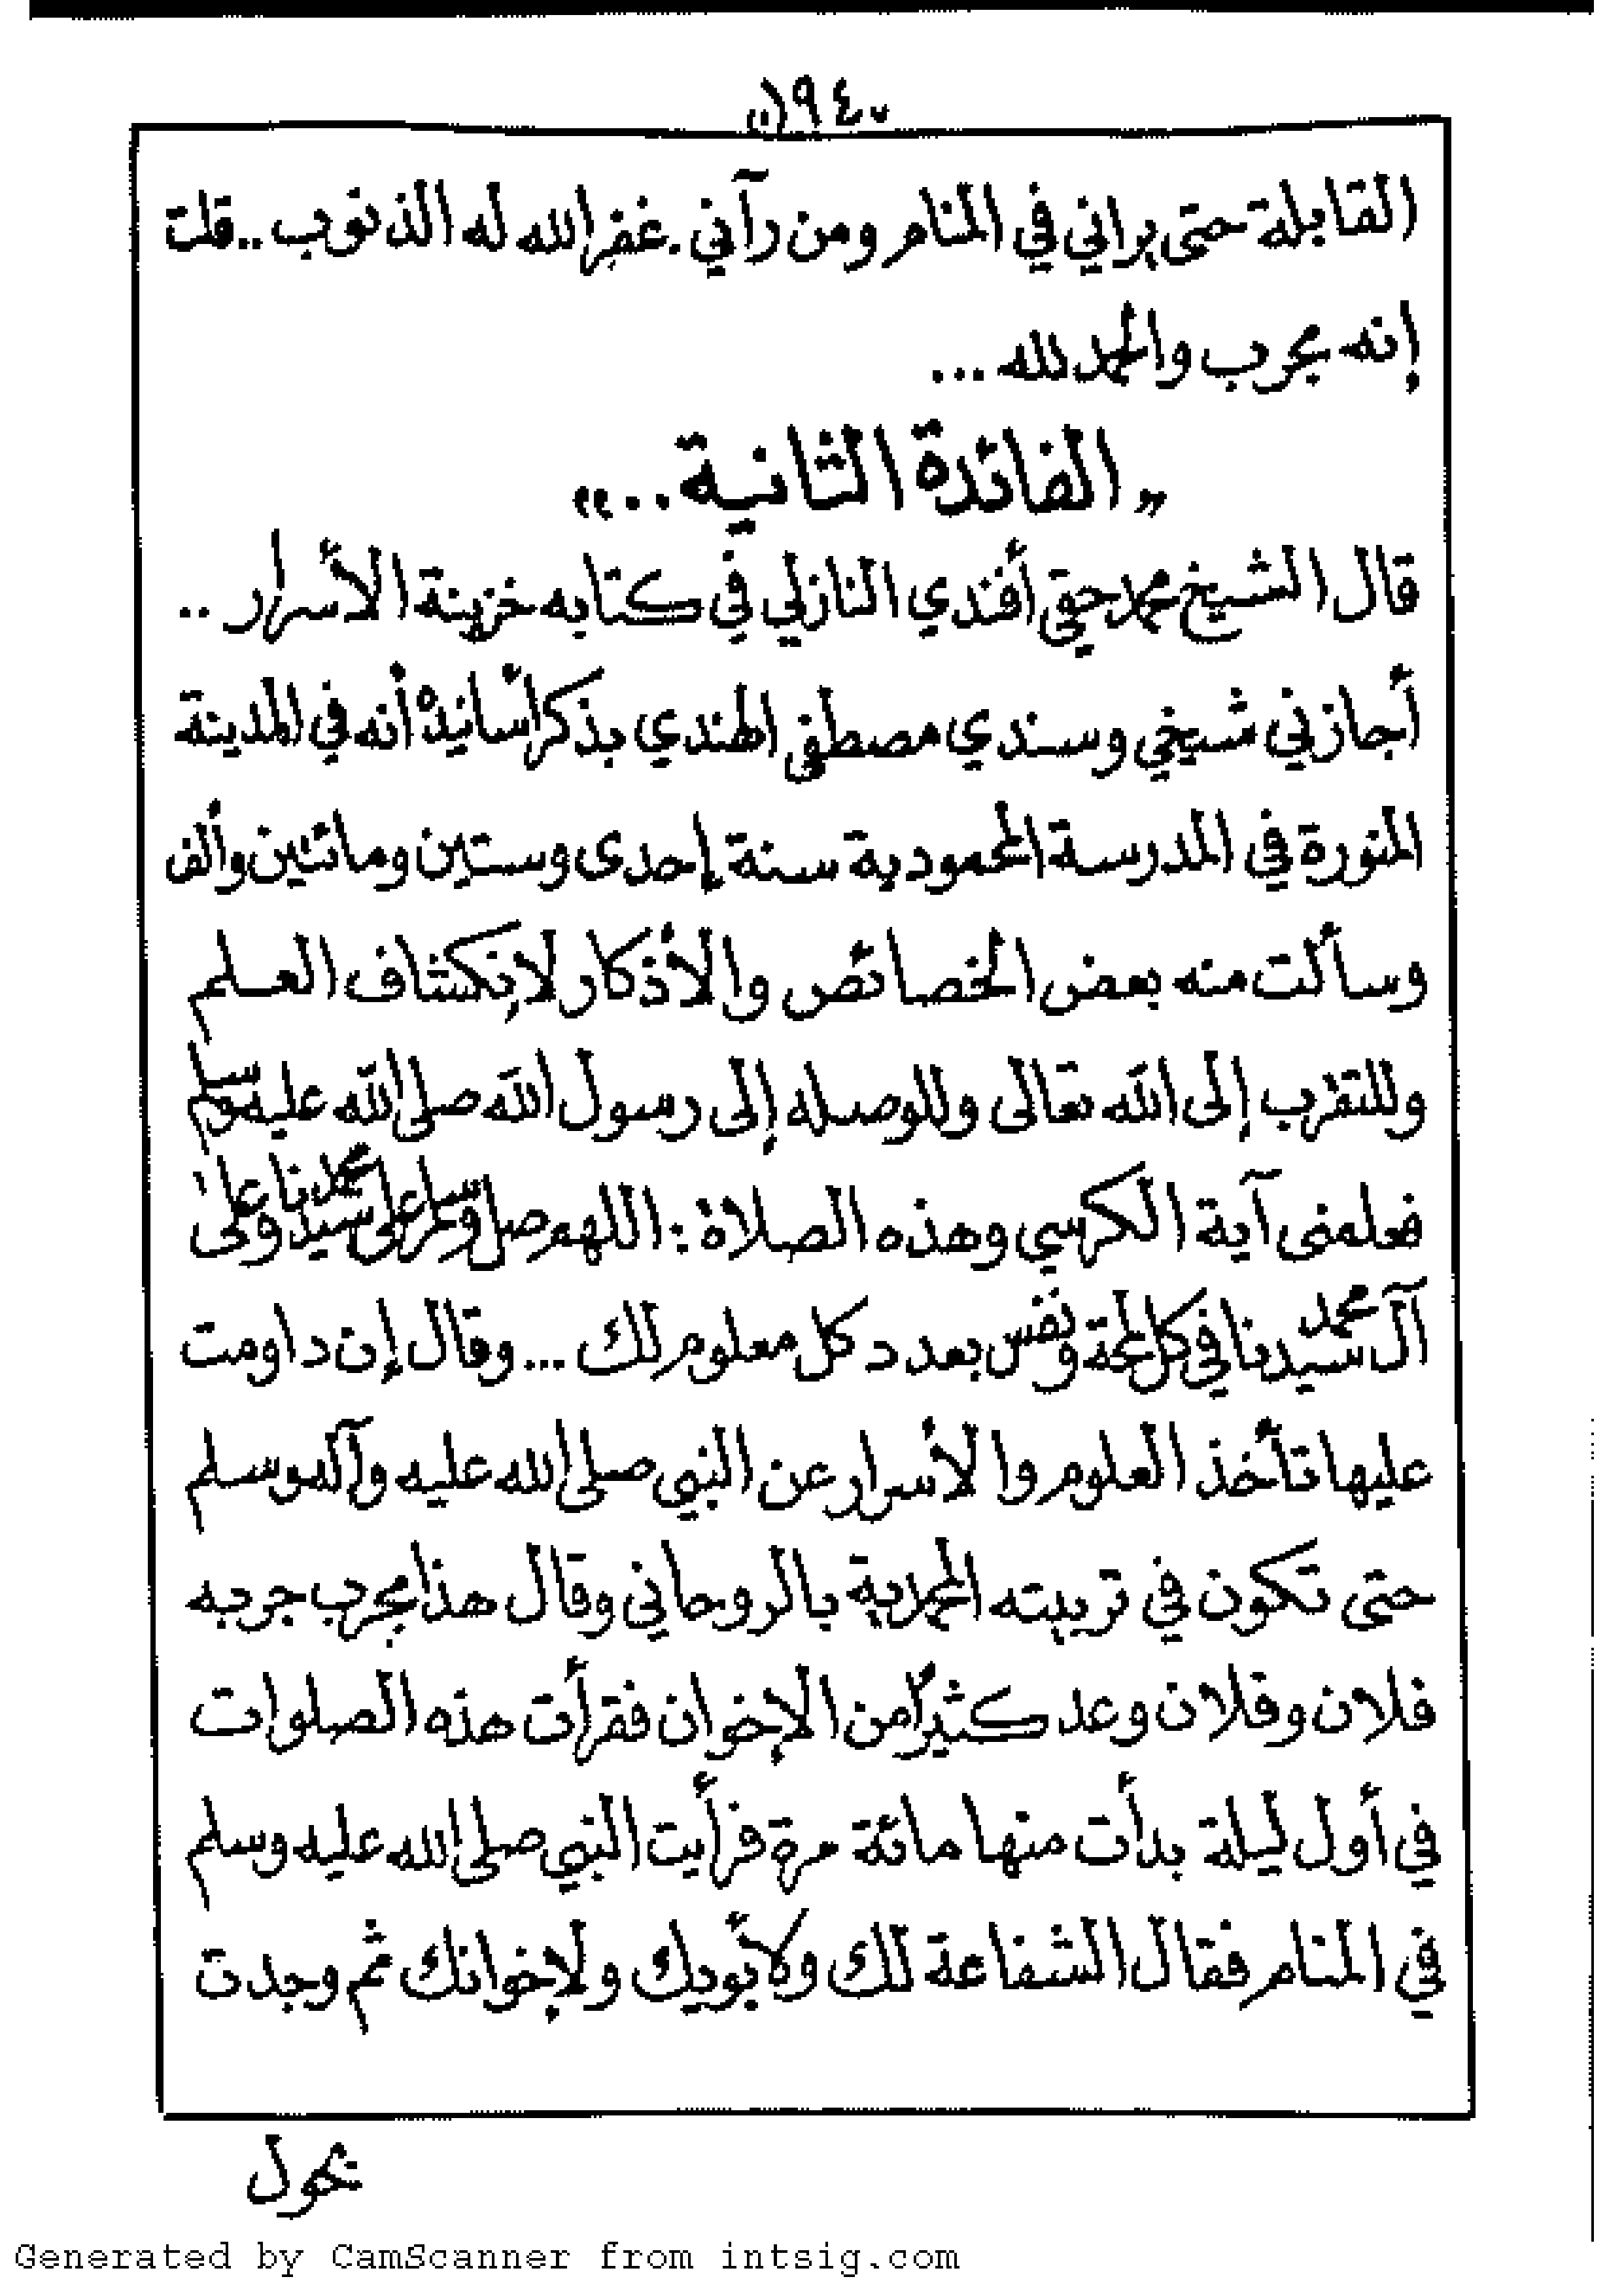 ١٩٤
القابلة حتى يراني في المنام ومن رآني . غفر الله له الذنوب .. قلت
إنه مجرب والحمد لله ...
« الفائدة الثانية .. »
قال الشيخ محمد حقي أفندي النازلي في كتابه خزينة الأسرار ..
أجازني شيخي وسندي مصطفى الهندي بذكر أسانيده أنه في المدينة
المنورة في المدرسة المحمودية سنة إحدى وستين ومائتين وألف
وسألت منه بعض الخصائص والأذكار لإنكشاف العلم
وللتقرب إلى الله تعالى وللوصله إلى رسول الله صلى الله عليه وسلم
فعلمنى آية الكرسي وهذه الصلاة : اللهم صل وسلم على سيدنا محمد وعلى
آل سيدنا محمد في كل لمحة ونفس بعدد كل معلوم لك ... وقال إن داومت
عليها تأخذ العلوم والأسرار عن النبي صلى الله عليه وآله وسلم
حتى تكون في تربيته المحمدية بالروحاني وقال هذا مجرب جربه
فلان وفلان وعد كثيرًا من الإخوان فقرأت هذه الصلوات
في أول ليلة بدأت منها مائة مرة فرأيت النبي صلى الله عليه وسلم
في المنام فقال الشفاعة لك ولأبويك ولإخوانك ثم وجدت
Generated by CamScanner from intsig.com